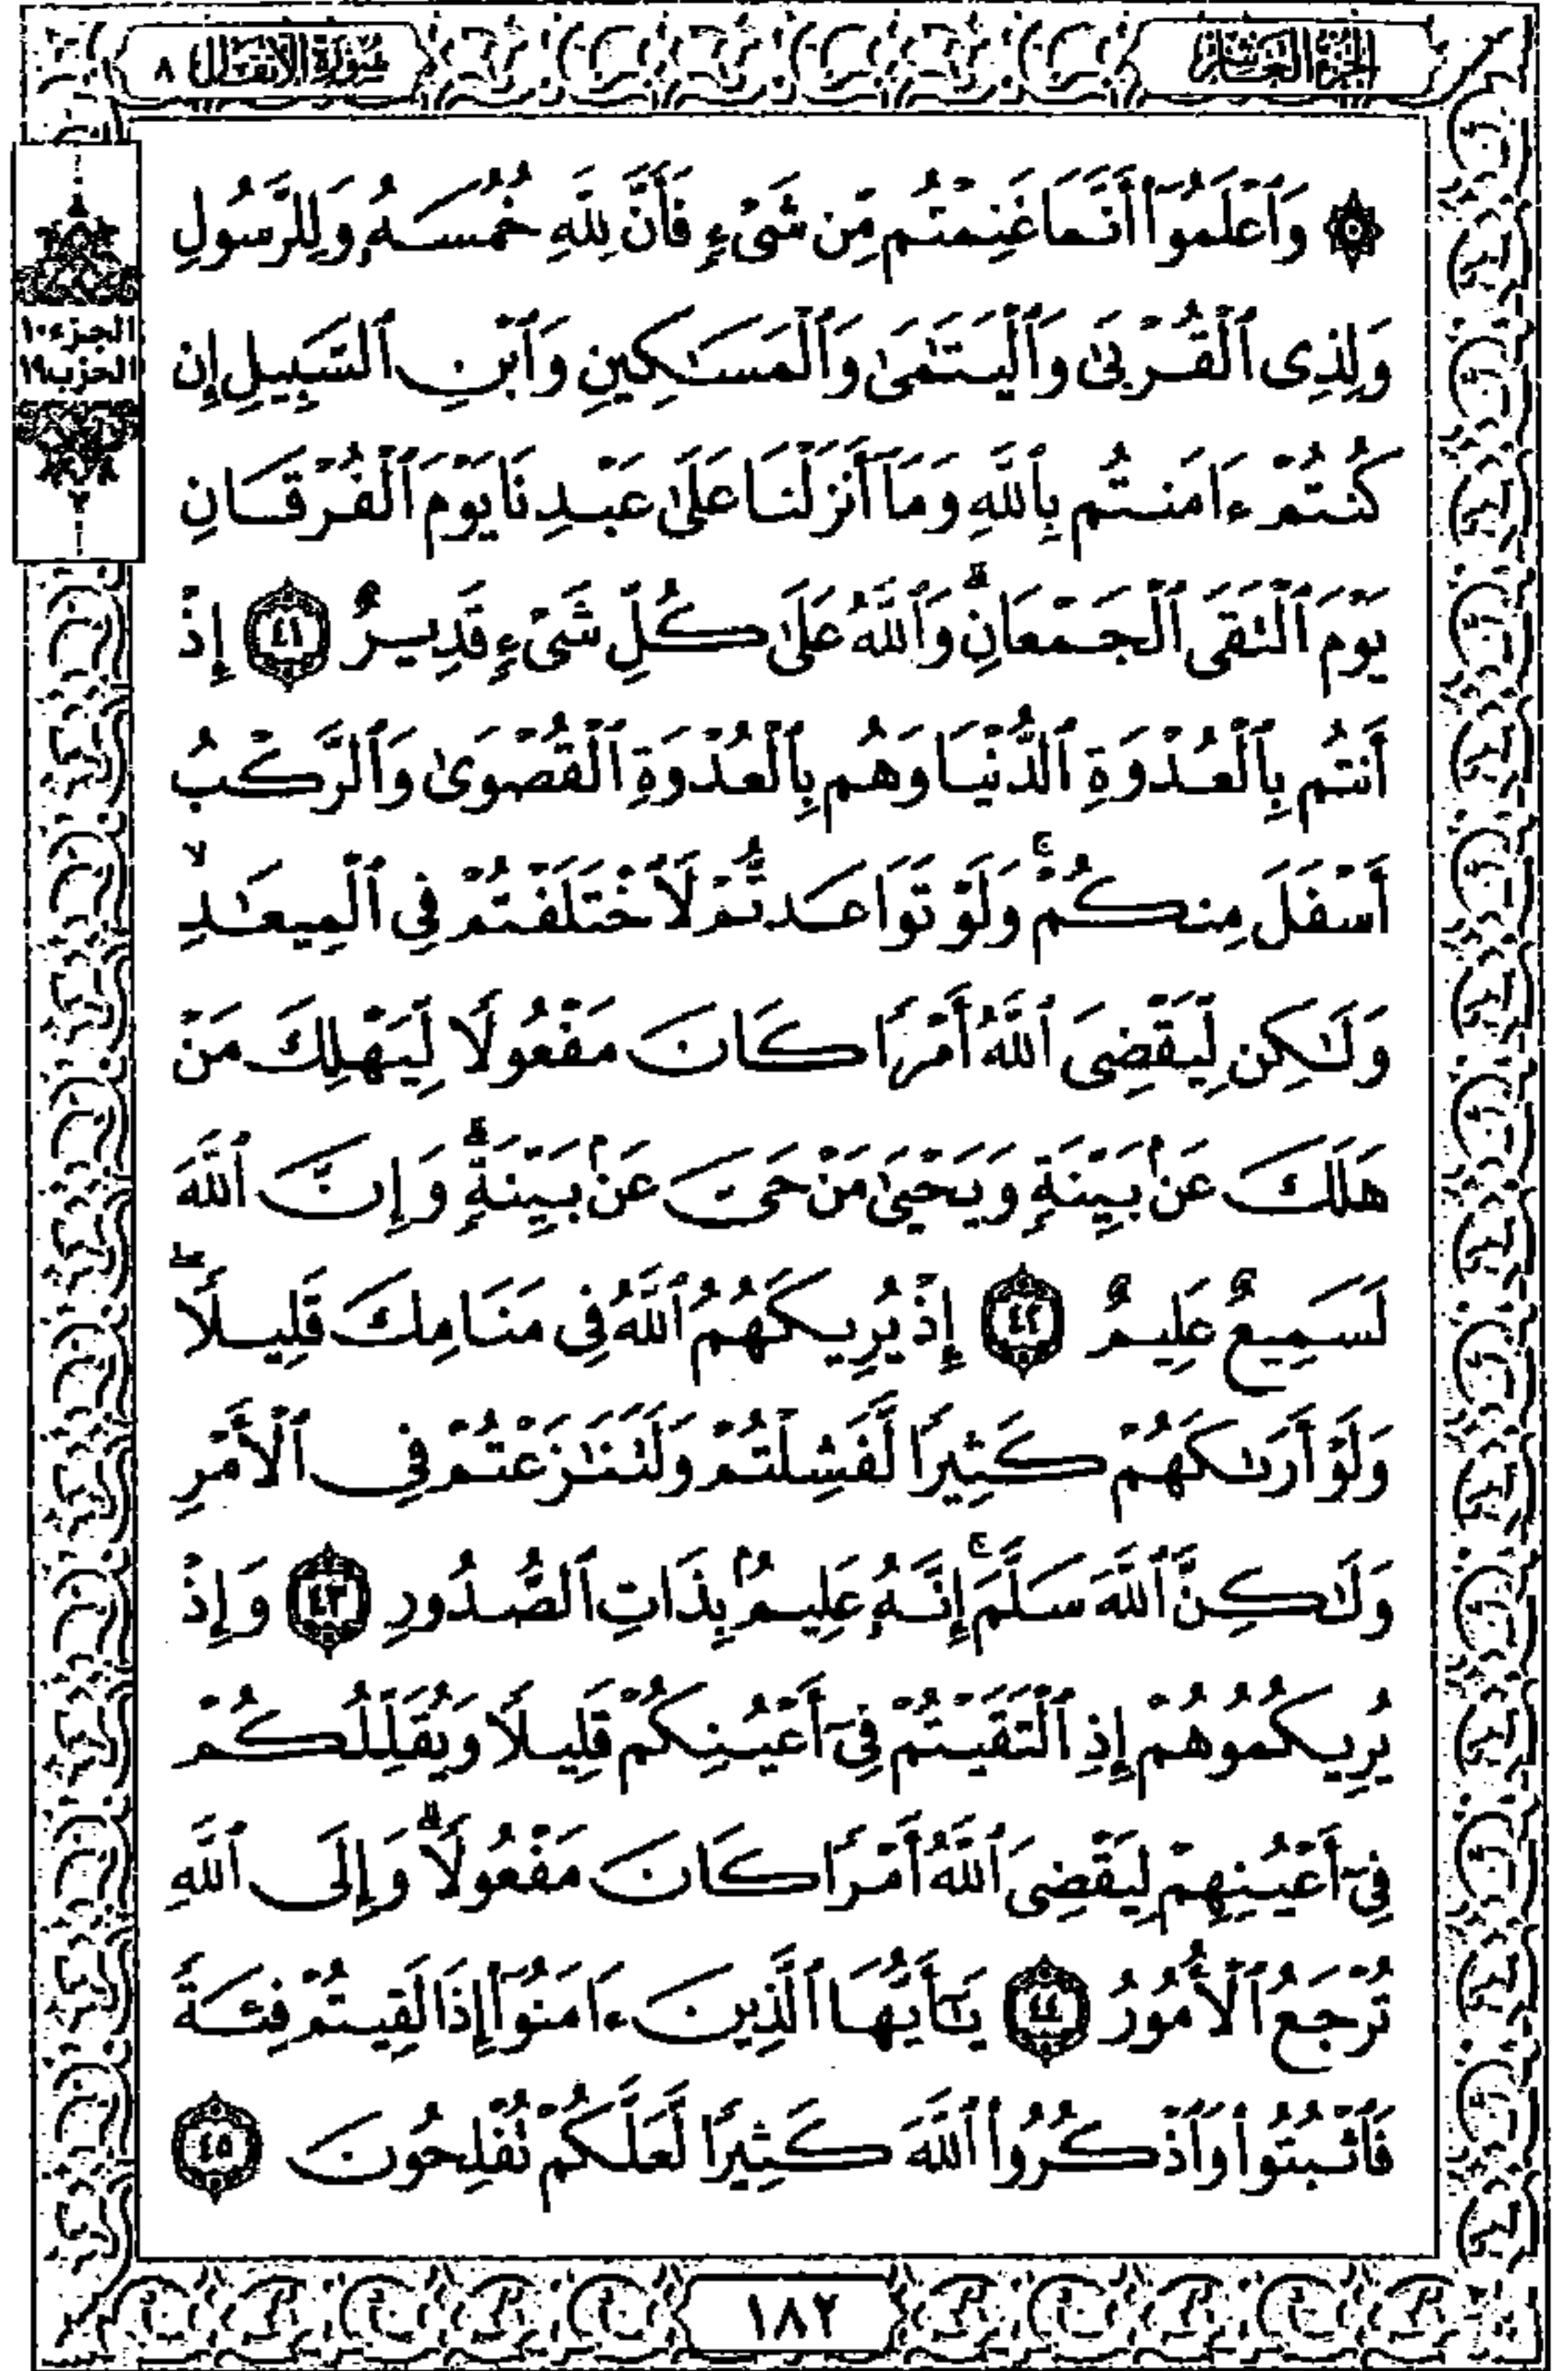 الجزء العاشر
سورة الأنفال ٨
الجزء ١٠
الحزب ١٩
۞ وَٱعۡلَمُوٓاْ أَنَّمَا غَنِمۡتُم مِّن شَيۡءٖ فَأَنَّ لِلَّهِ خُمُسَهُۥ وَلِلرَّسُولِ
وَلِذِي ٱلۡقُرۡبَىٰ وَٱلۡيَتَٰمَىٰ وَٱلۡمَسَٰكِينِ وَٱبۡنِ ٱلسَّبِيلِ إِن
كُنتُمۡ ءَامَنتُم بِٱللَّهِ وَمَآ أَنزَلۡنَا عَلَىٰ عَبۡدِنَا يَوۡمَ ٱلۡفُرۡقَانِ
يَوۡمَ ٱلۡتَقَى ٱلۡجَمۡعَانِۗ وَٱللَّهُ عَلَىٰ كُلِّ شَيۡءٖ قَدِيرٌ ٤١ إِذۡ
أَنتُم بِٱلۡعُدۡوَةِ ٱلدُّنۡيَا وَهُم بِٱلۡعُدۡوَةِ ٱلۡقُصۡوَىٰ وَٱلرَّكۡبُ
أَسۡفَلَ مِنكُمۡۚ وَلَوۡ تَوَاعَدتُّمۡ لَٱخۡتَلَفۡتُمۡ فِي ٱلۡمِيعَٰدِ ۙ
وَلَٰكِن لِّيَقۡضِيَ ٱللَّهُ أَمۡرٗا كَانَ مَفۡعُولٗا لِّيَهۡلِكَ مَنۡ
هَلَكَ عَنۢ بَيِّنَةٖ وَيَحۡيَىٰ مَنۡ حَيَّ عَنۢ بَيِّنَةٖۗ وَإِنَّ ٱللَّهَ
لَسَمِيعٌ عَلِيمٌ ٤٢ إِذۡ يُرِيكَهُمُ ٱللَّهُ فِي مَنَامِكَ قَلِيلٗاۖ
وَلَوۡ أَرَىٰكَهُمۡ كَثِيرٗا لَّفَشِلۡتُمۡ وَلَتَنَٰزَعۡتُمۡ فِي ٱلۡأَمۡرِ
وَلَٰكِنَّ ٱللَّهَ سَلَّمَۚ إِنَّهُۥ عَلِيمُۢ بِذَاتِ ٱلصُّدُورِ ٤٣ وَإِذۡ
يُرِيكُمُوهُمۡ إِذِ ٱلۡتَقَيۡتُمۡ فِيٓ أَعۡيُنِكُمۡ قَلِيلٗا وَيُقَلِّلُكُمۡ
فِيٓ أَعۡيُنِهِمۡ لِيَقۡضِيَ ٱللَّهُ أَمۡرٗا كَانَ مَفۡعُولٗاۗ وَإِلَى ٱللَّهِ
تُرۡجَعُ ٱلۡأُمُورُ ٤٤ يَٰٓأَيُّهَا ٱلَّذِينَ ءَامَنُوٓاْ إِذَا لَقِيتُمۡ فِئَةٗ
فَٱثۡبُتُواْ وَٱذۡكُرُواْ ٱللَّهَ كَثِيرٗا لَّعَلَّكُمۡ تُفۡلِحُونَ ٤٥
١٨٢